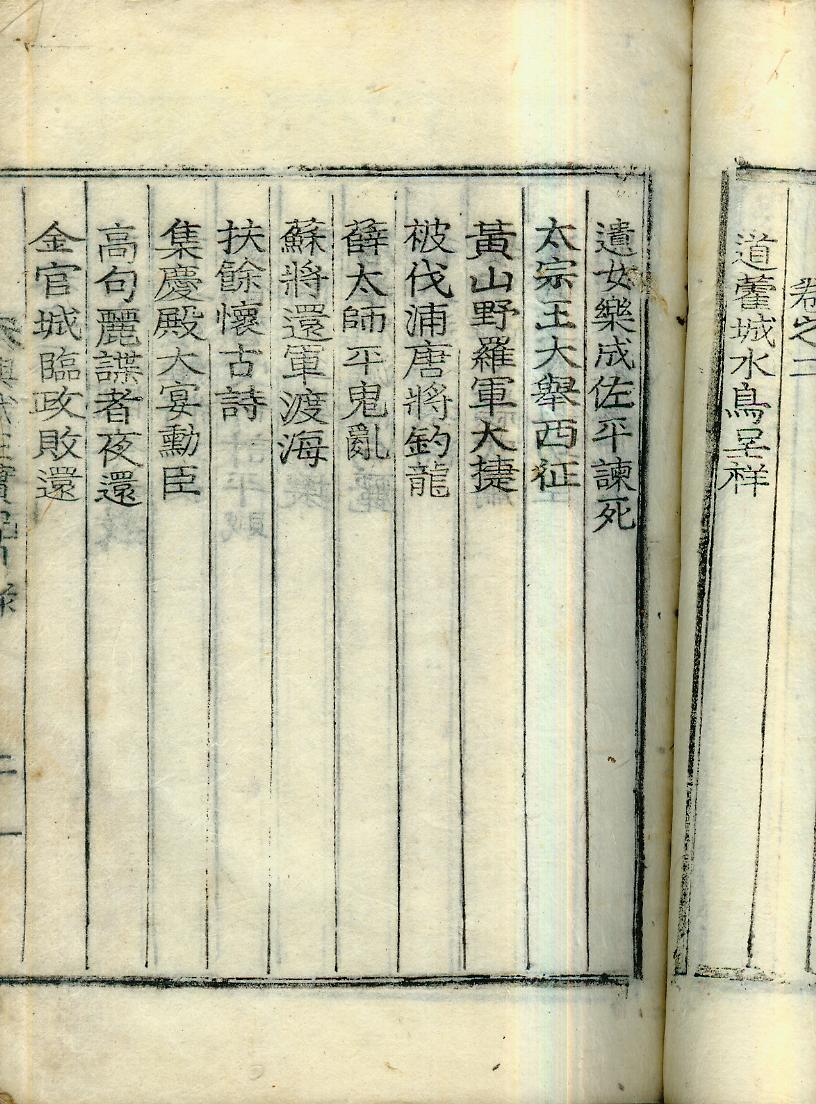 卷之二
道藿城水鳥呈祥
遺女樂成佐平諫死
太宗王大舉西征
黃山野羅軍大捷
被伐浦唐將釣龍
薛太師平鬼亂
蘇將還軍渡海
扶餘懷古詩
集慶殿大宴勳臣
高句麗諜者夜還
金官城臨政敗還
二